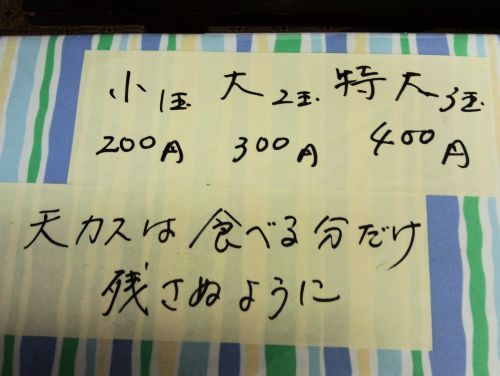 小1玉 大2玉 特大3玉
200円 300円 400円
天カスは食べる分だけ
残さぬように